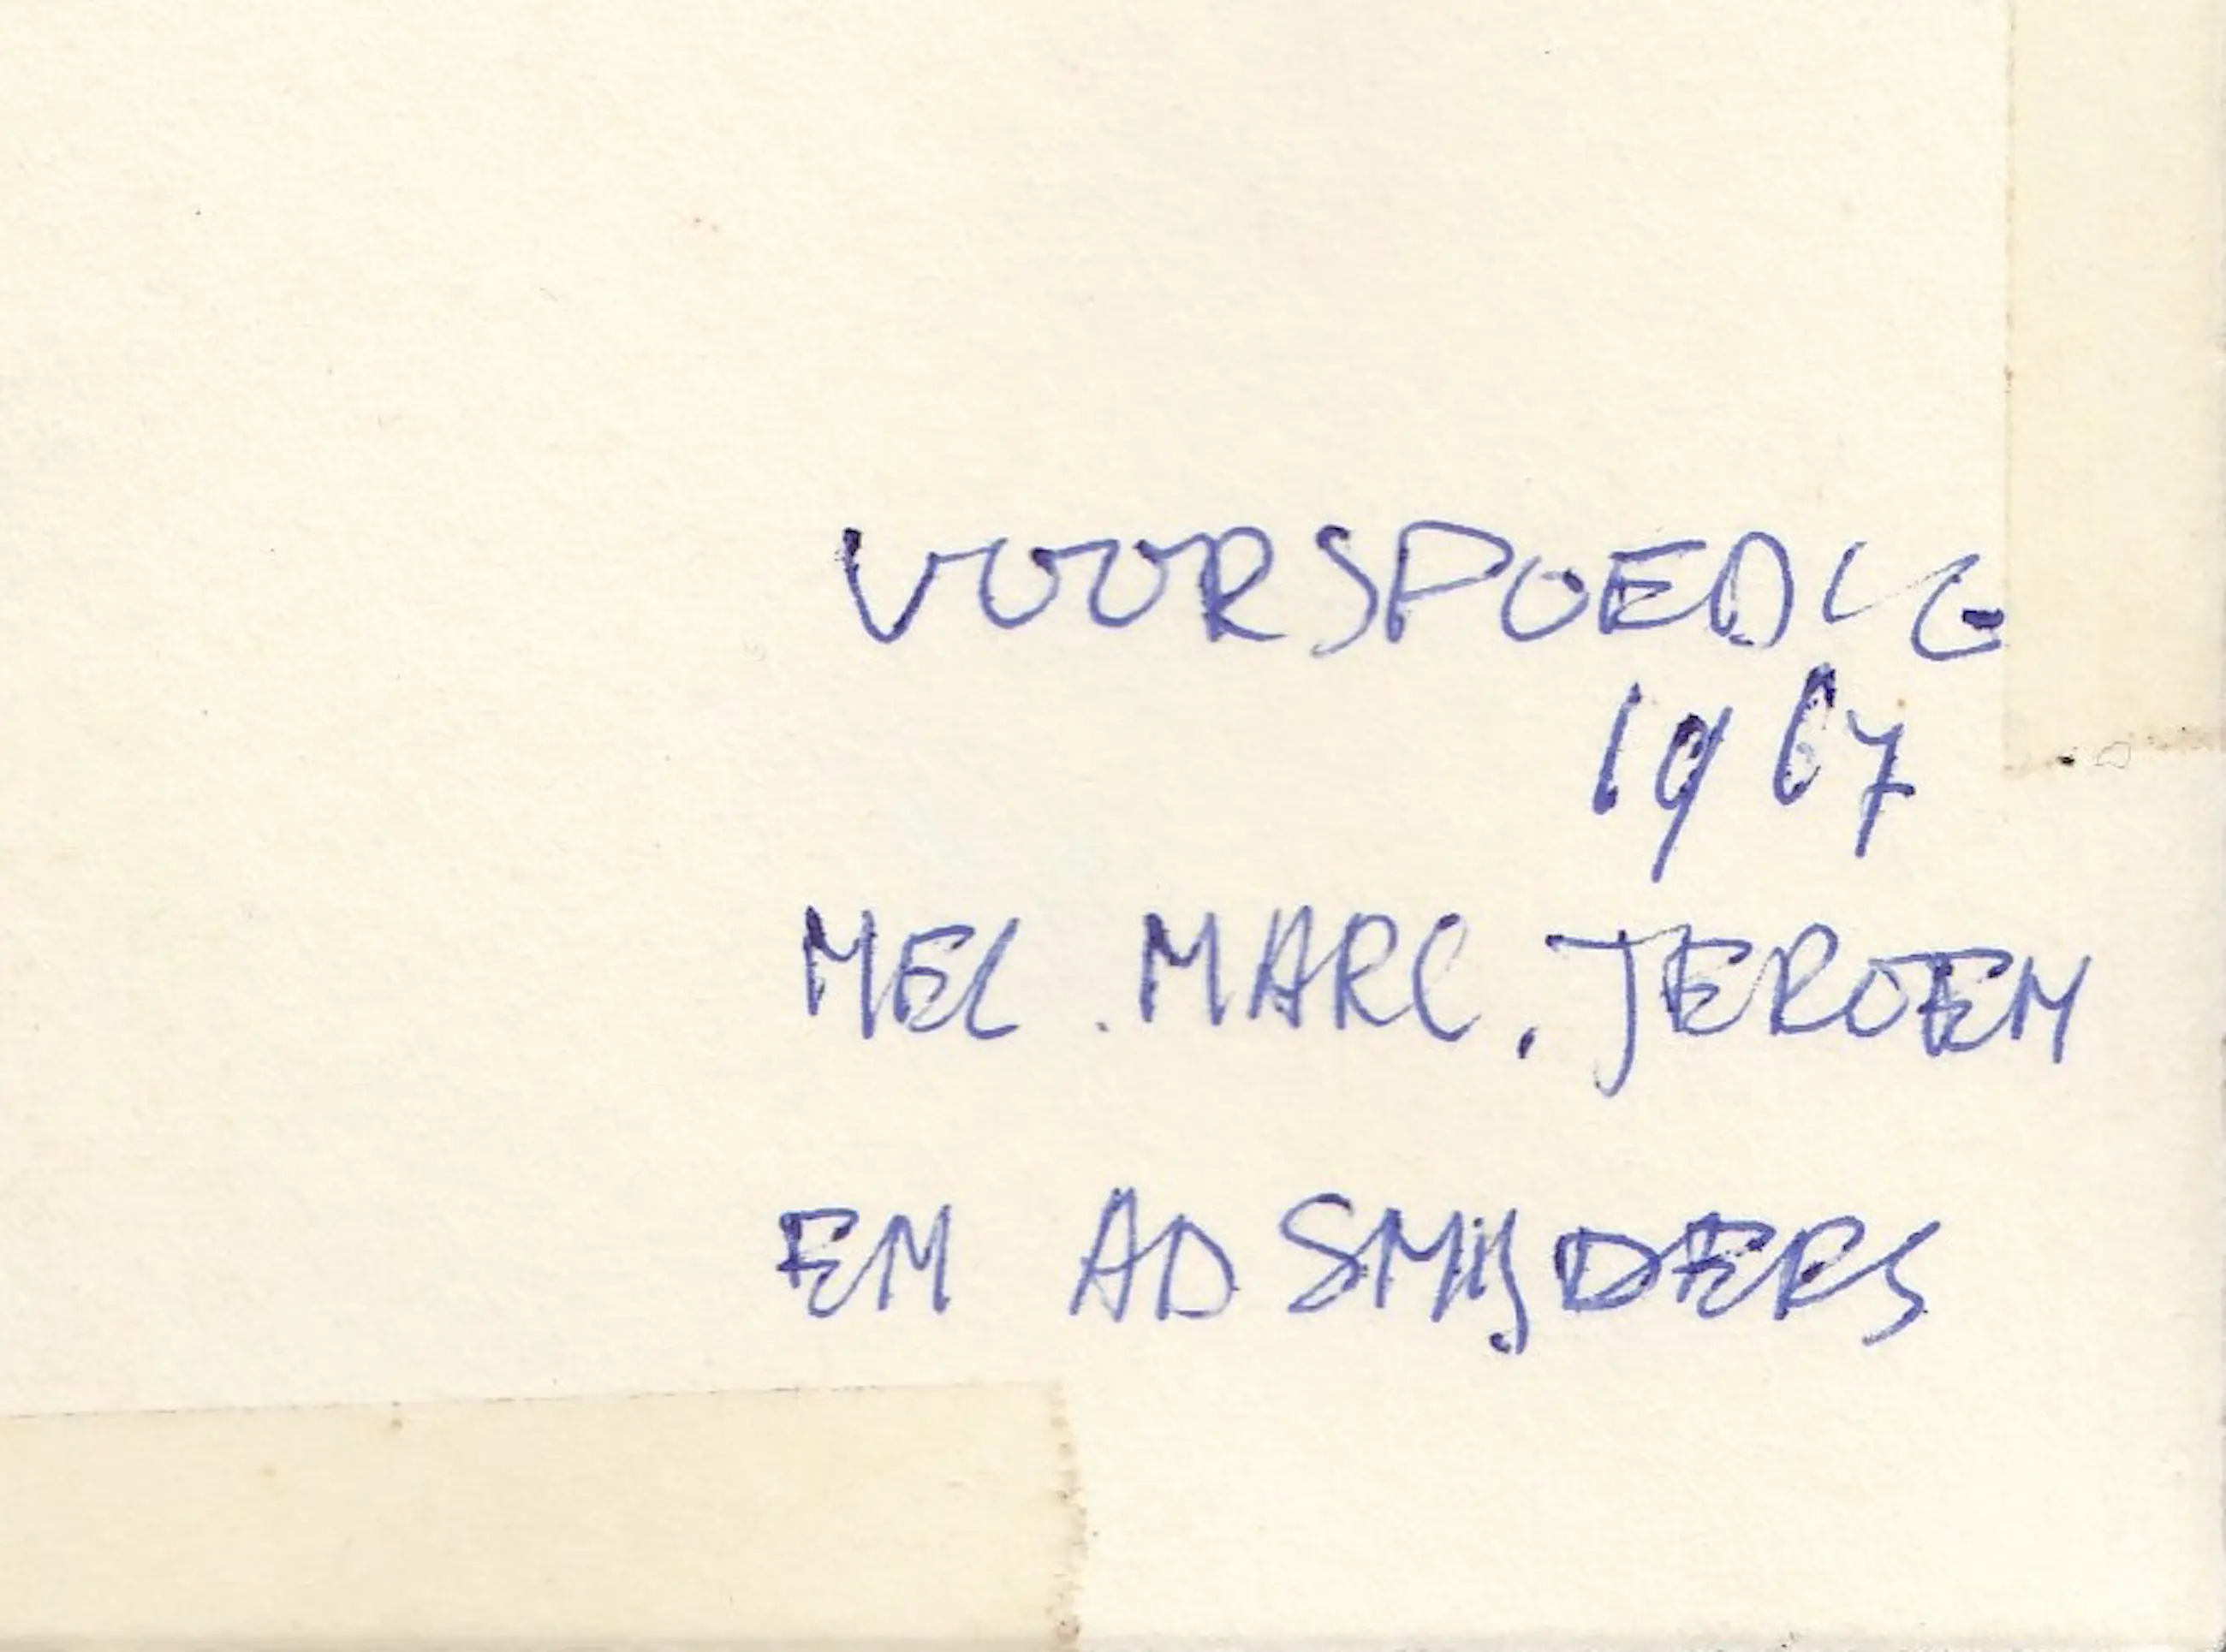 VOORSPOEDIG
1967
MEL . MARC . JEROEN
EN AD SNIJDERS